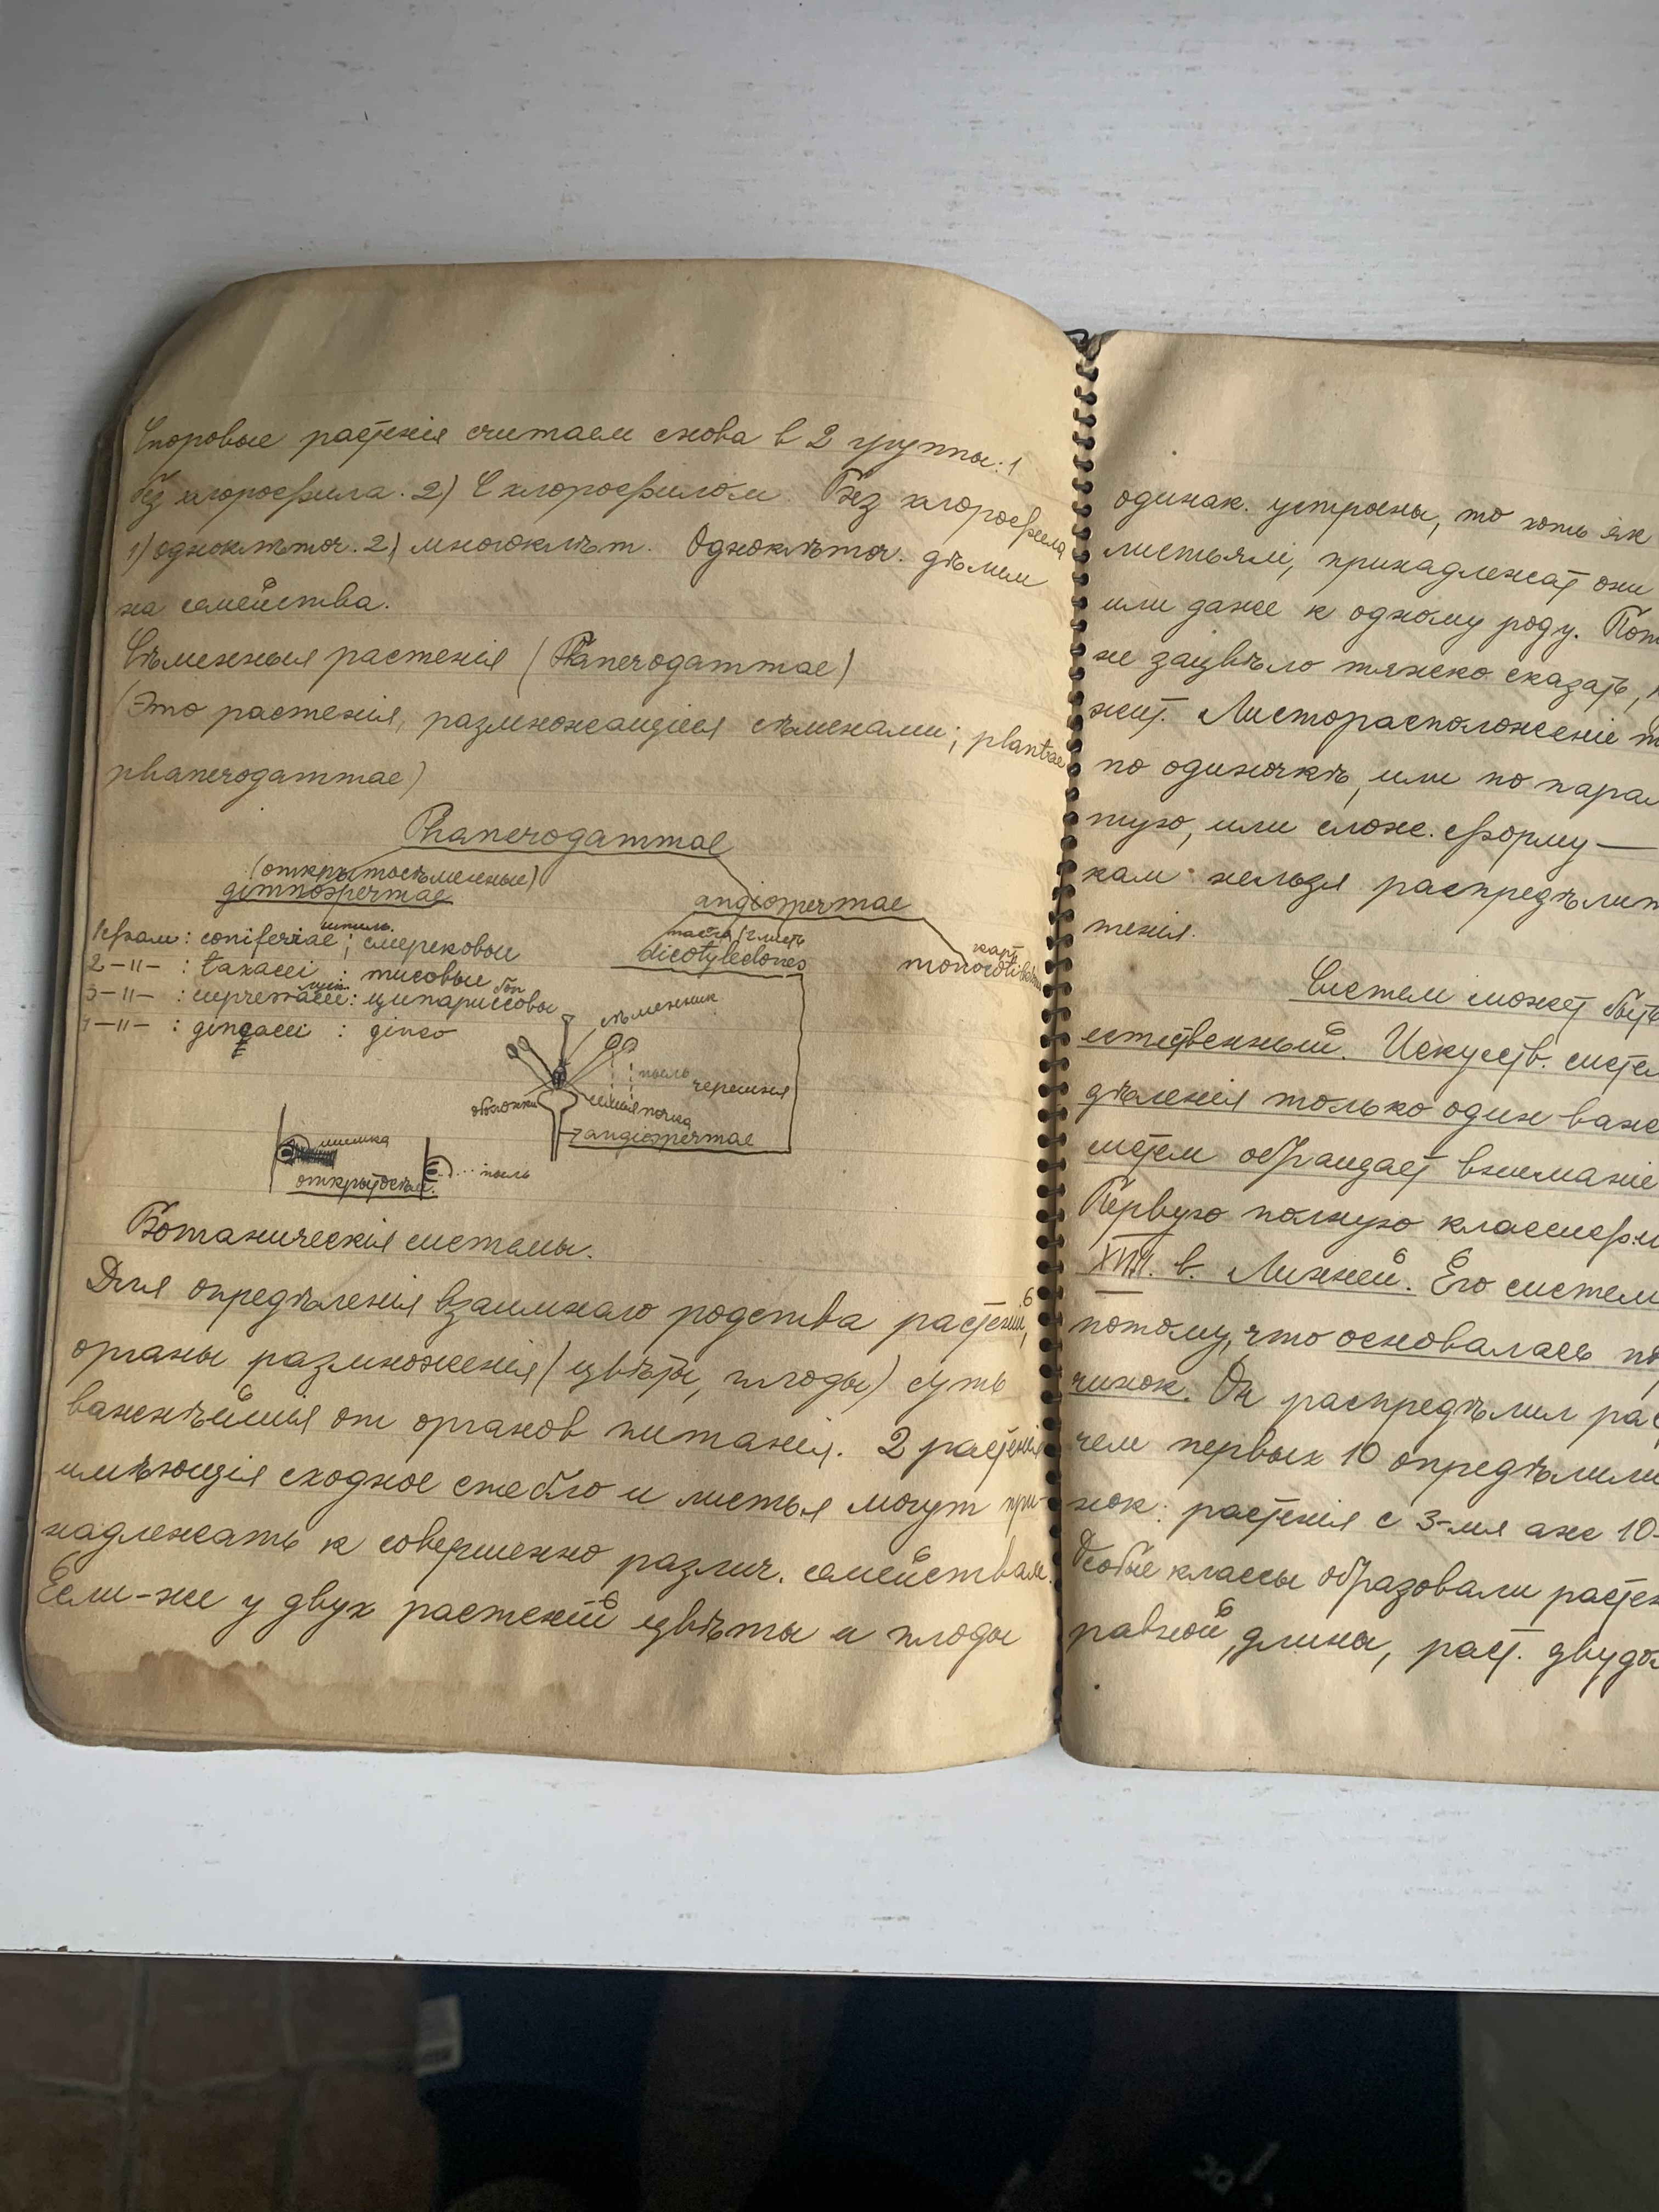 Споровые растенія считаем снова в 2 группы: 1
без хлорофила. 2) С хлорофилом. Без хлорофила
1) одноклѣточ. 2) многоклѣт. Одноклѣточ. дѣлим
на семейства.
Сѣменныя растенія (Phanerogammae)
(Это растенія, размножающіеся сѣменами; plantae
phanerogammae)
Phanerogammae
(открытосѣменные)
gimnospermae
angiospermae
dicotyledones
1 фам: coniferiae; смерековыи
2 -11- : taxacei : тисовые
3 -11- : ципариссовы
1 -11- : ginco
сѣменник
пыль
черешня
оболочки
angiospermae
шишка
открытосѣм.
пыль
Ботаническія системы.
Для опредѣленія взаимнаго родства растеній,
органы размноженія (цвѣты, плоды) суть
важнѣйшыя от органов питанія. 2 растенія
имѣющія сходное стебло и листья могут при-
надлежать к совершенно различ. семействам.
Если-же у двух растеній цвѣты и плоды
одинак. устроены, то хоть як
листьями, принадлежат они
или даже к одному роду.
не зацвѣло тяжко сказать,
жит. Листорасположеніе
по одиночкѣ, или по парам
тую, или слож. форму —
кам нельзя распредѣлит
тенія.
Систем может быть
естественный. Искуств. систем
дѣленія только один важ
систем обращает вниманіе
Первую полную классифи
XVIII. в. Линней. Его систем
потому, что основалась
чинок. Он распредѣлил рас
чем первых 10 опредѣлили
нок: растенія с 3-мя аже 10-
Особые классы образовали расте
равной длины, раст. двудо